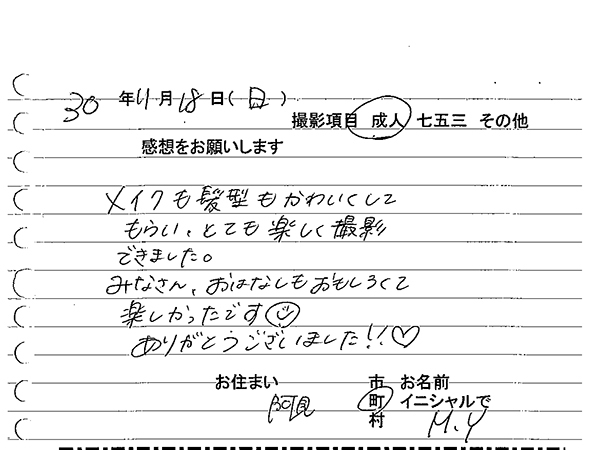 30 年 11 月 18 日(日)
撮影項目 成人 七五三 その他
感想をお願いします
メイクも髪型もかわいくして
もらい、とても楽しく撮影
できました。
みなさん、おはなしもおもしろくて
楽しかったです☺
ありがとうございました!!♡
お住まい 阿見 市 町 村
お名前 イニシャルで M.Y